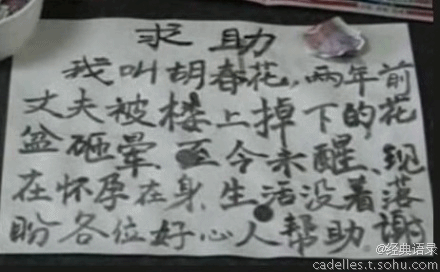 求助
我叫胡春花,两年前
丈夫被楼上掉下的花
盆砸晕 至今未醒、现
在怀孕在身、生活没着落
盼各位好心人帮助 谢
@经典语录
cadelles.t.sohu.com